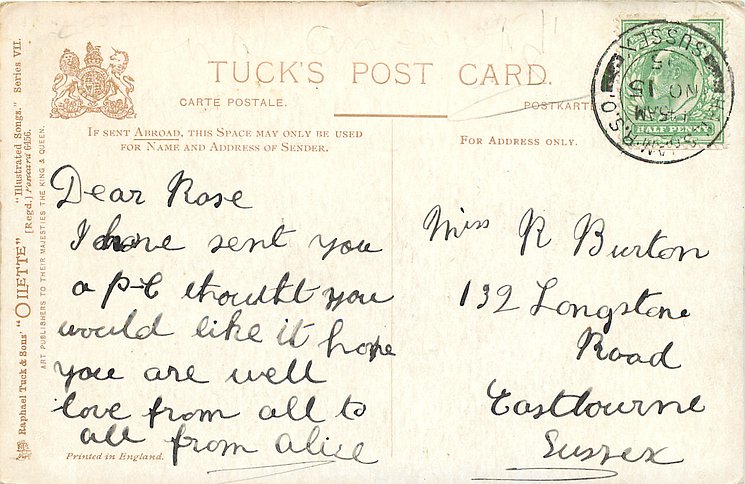 TUCK'S POST CARD.
CARTE POSTALE.
POSTKARTE
IF SENT ABROAD, THIS SPACE MAY ONLY BE USED
FOR NAME AND ADDRESS OF SENDER.
FOR ADDRESS ONLY.
Dear Rose
I have sent you
a P-C thoutht you
would like it hope
you are well
love from all to
all from alice
Printed in England.
Miss R Burton
132 Longstone
Road
Eastbourne
Sussex
HALF PENNY
SUSSEX
5
NO 15
AM
R.S.O.
Raphael Tuck & Sons' "OILETTE" "Illustrated Songs." Series VII.
[Regd.] Postcard 6456.
ART PUBLISHERS TO THEIR MAJESTIES THE KING & QUEEN.